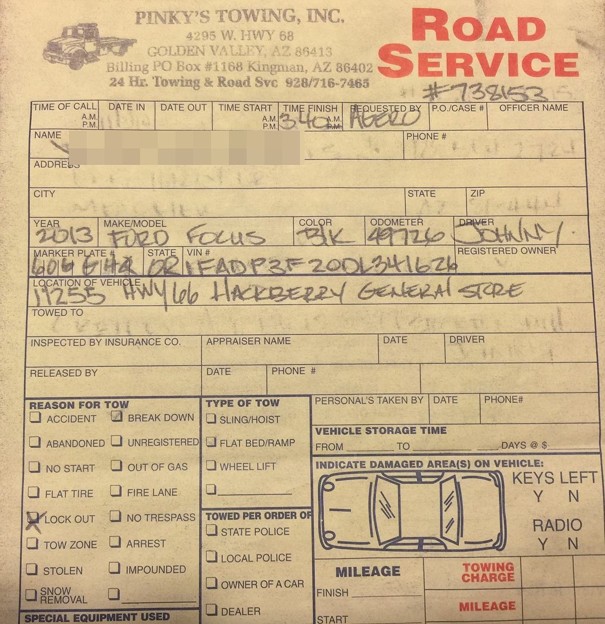 PINKY'S TOWING, INC.
4295 W. HWY 68
GOLDEN VALLEY, AZ 86413
Billing PO Box #1168 Kingman, AZ 86402
24 Hr. Towing & Road Svc 928/716-7465
ROAD
SERVICE
#738153
TIME OF CALL DATE IN DATE OUT TIME START TIME FINISH REQUESTED BY P.O./CASE # OFFICER NAME
A.M. A.M. A.M.
P.M. P.M. 3:40 P.M. AGERO
NAME PHONE #
ADDRESS
CITY STATE ZIP
YEAR MAKE/MODEL COLOR ODOMETER DRIVER
2013 FORD FOCUS Blk 49726 JOHNNY
MARKER PLATE # STATE VIN # REGISTERED OWNER
OR 1FADP3F20DL341626
LOCATION OF VEHICLE
19255 HWY 66 HACKBERRY GENERAL STORE
TOWED TO
INSPECTED BY INSURANCE CO. APPRAISER NAME DATE DRIVER
RELEASED BY DATE PHONE #
REASON FOR TOW TYPE OF TOW PERSONAL'S TAKEN BY DATE PHONE#
ACCIDENT BREAK DOWN SLING/HOIST
VEHICLE STORAGE TIME
ABANDONED UNREGISTERED FLAT BED/RAMP FROM TO DAYS @ $
NO START OUT OF GAS WHEEL LIFT INDICATE DAMAGED AREA(S) ON VEHICLE:
KEYS LEFT
FLAT TIRE FIRE LANE Y N
LOCK OUT NO TRESPASS TOWED PER ORDER OF
STATE POLICE RADIO
TOW ZONE ARREST LOCAL POLICE Y N
STOLEN IMPOUNDED OWNER OF A CAR MILEAGE TOWING CHARGE
SNOW REMOVAL FINISH
DEALER MILEAGE
SPECIAL EQUIPMENT USED START